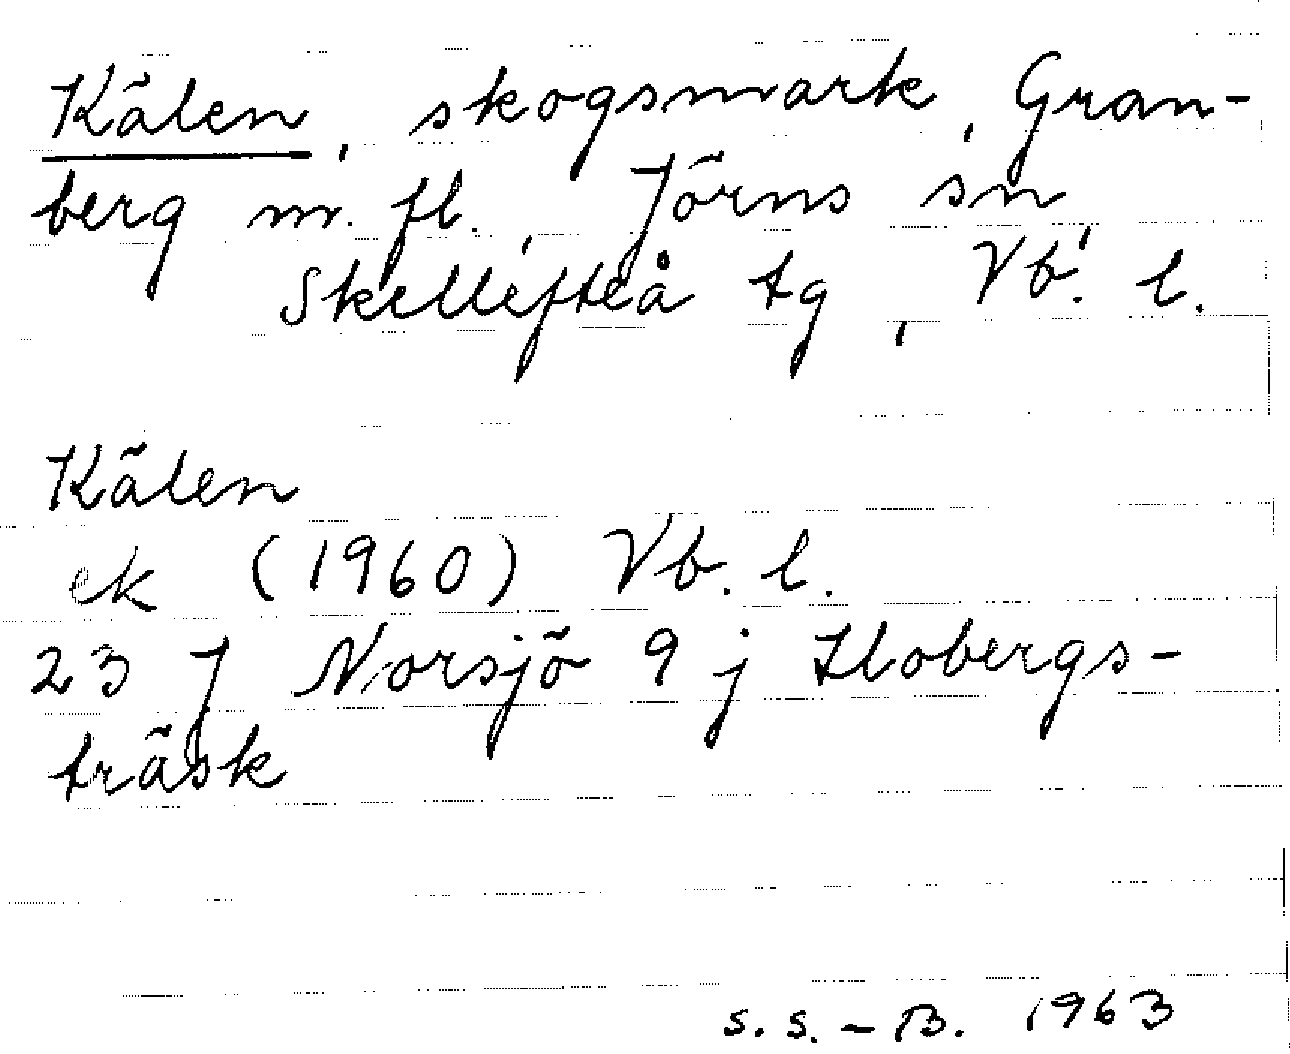 Kälen, skogsmark, Gran-
berg m. fl., Jörns sn,
Skellefteå tg, Vb. l.
Kälen
ek (1960) Vb. l.
23 J Norsjö 9 j Hobergs-
träsk
s. s. – B. 1963